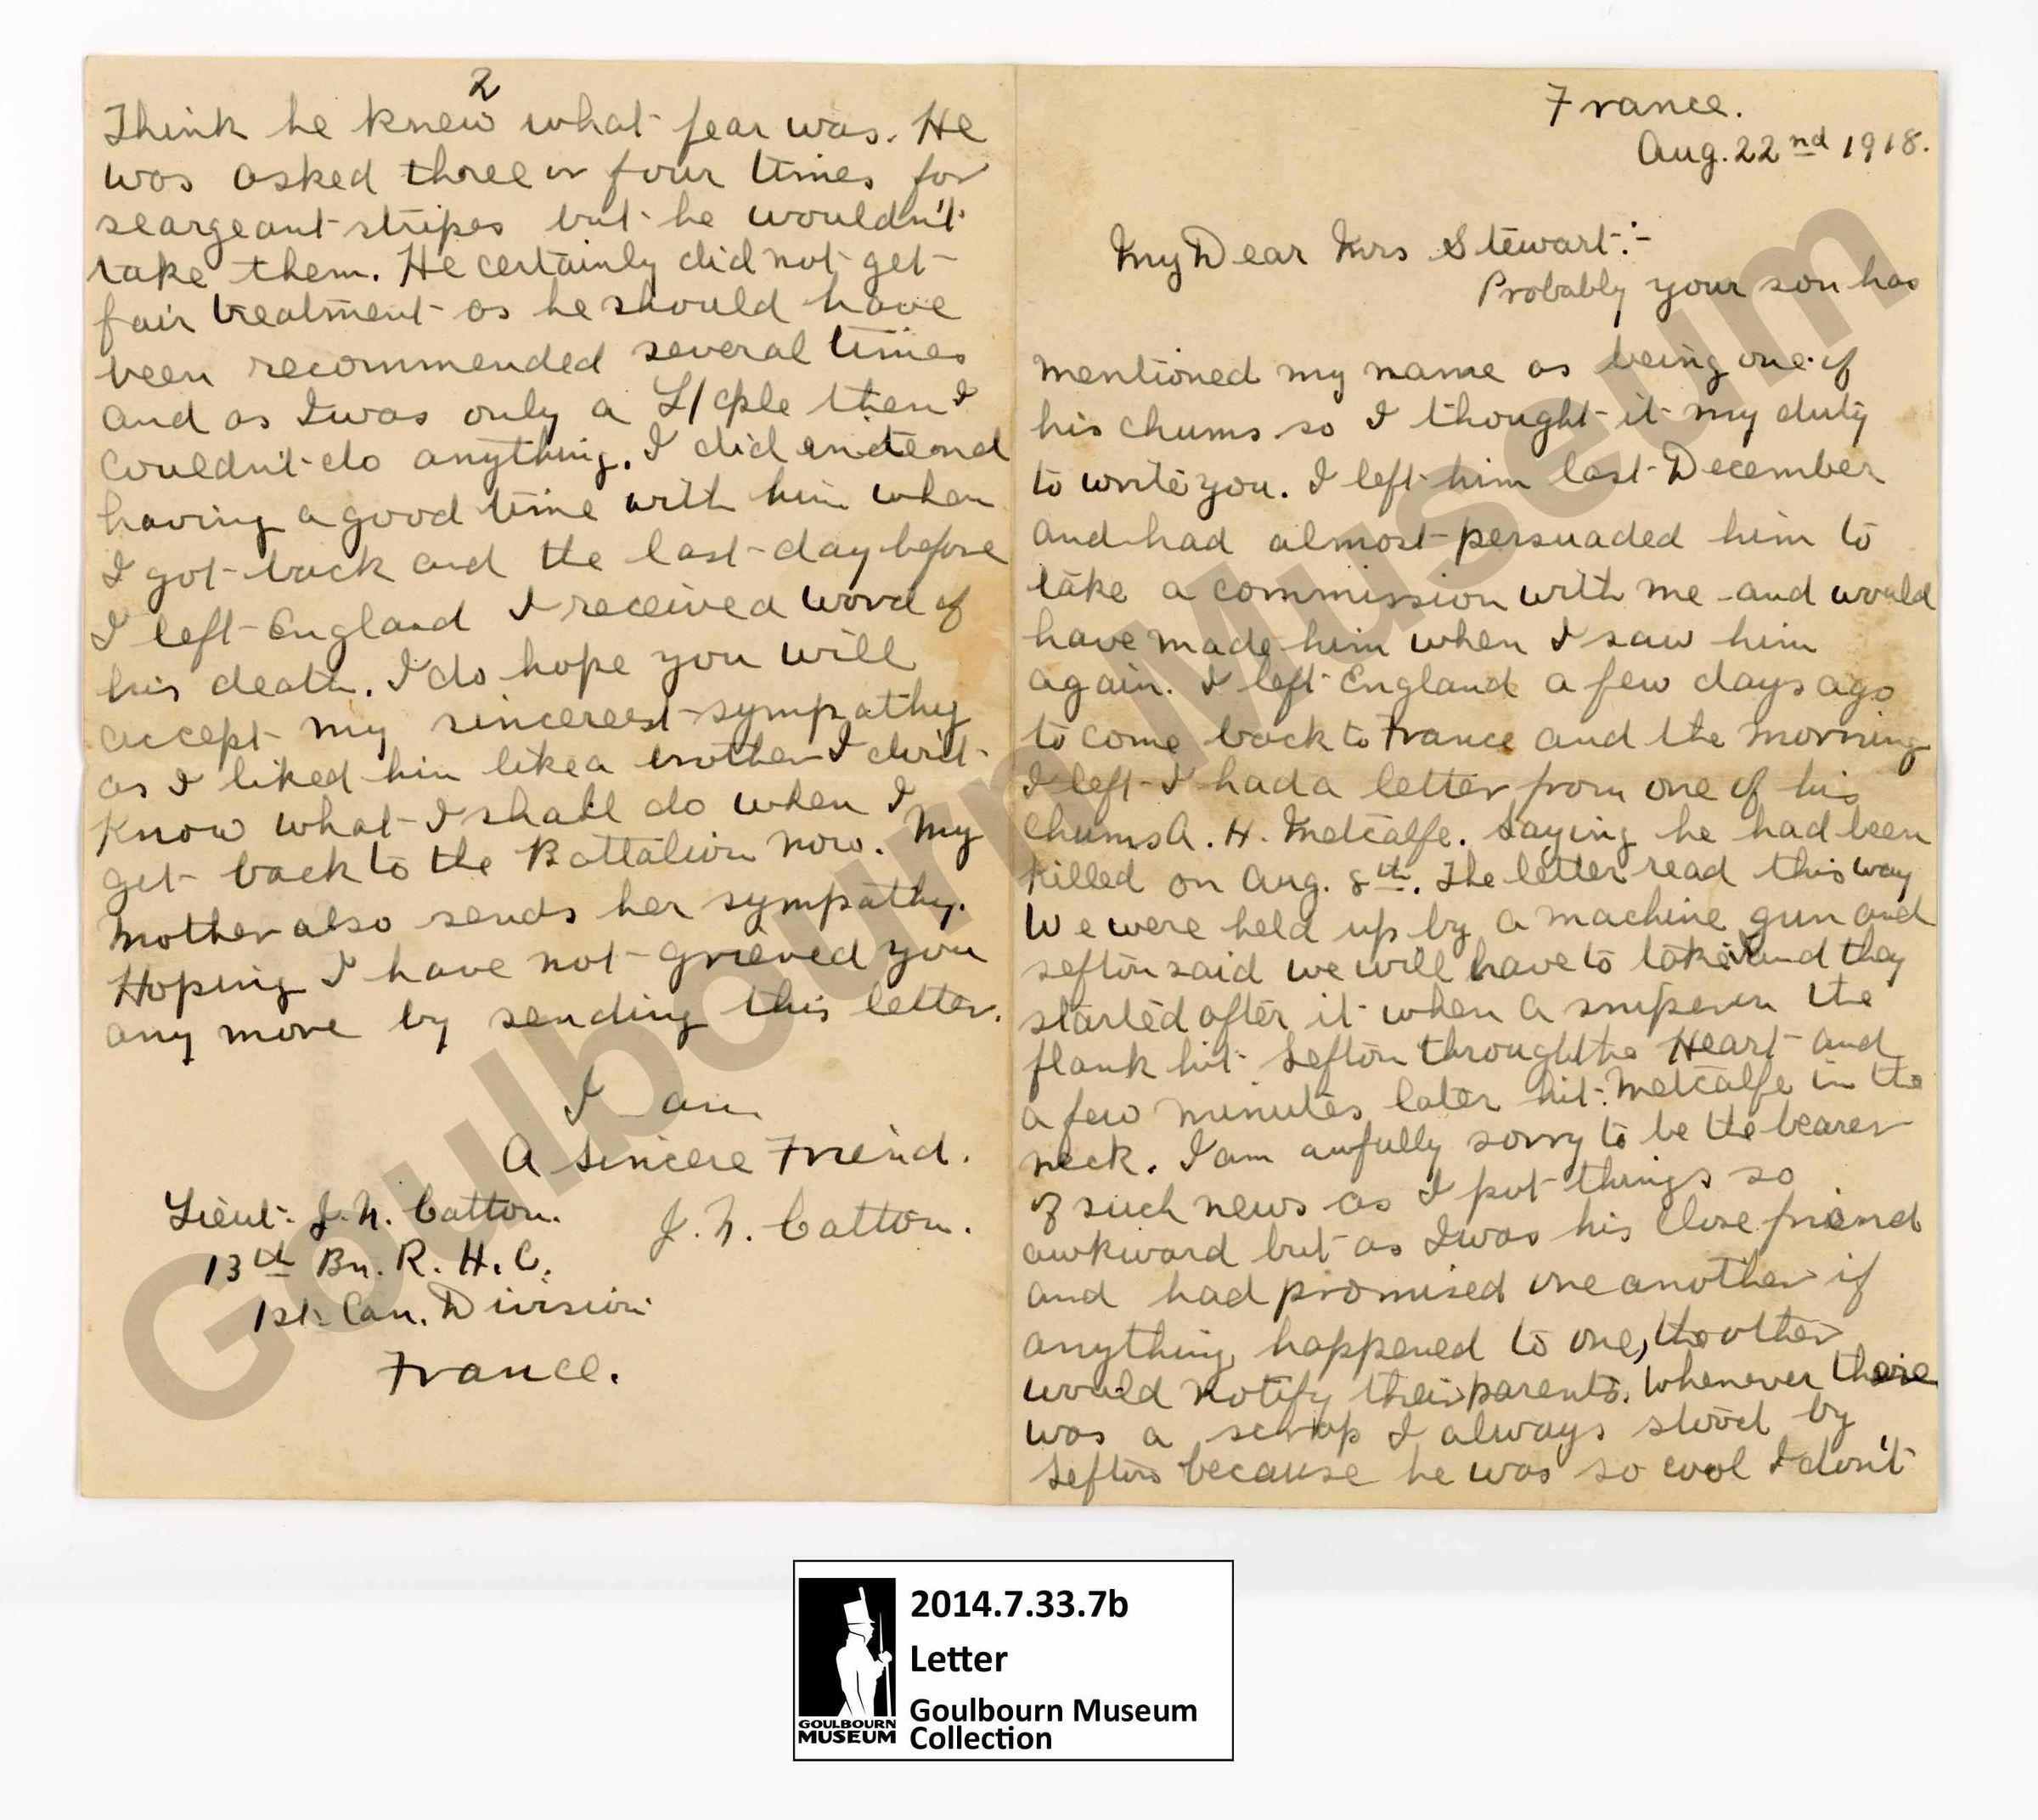 France.
Aug. 22nd 1918.
My Dear Mrs Stewart:-
Probably your son has
mentioned my name as being one of
his chums so I thought it my duty
to write you. I left him last December
and had almost persuaded him to
take a commission with me and would
have made him when I saw him
again. I left England a few days ago
to come back to France and the morning
I left I had a letter from one of his
chums A. H. Metcalfe. Saying he had been
killed on Aug. 8th. The letter read this way
We were held up by a machine gun and
sefton said we will have to take it and they
started after it when a sniper on the
flank hit Sefton through the Heart and
a few minutes later hit Metcalfe in the
neck. I am awfully sorry to be the bearer
of such news as I put things so
awkward but as I was his close friend
and had promised one another if
anything happened to one, the other
would notify their parents. Whenever there
was a scrap I always stood by
Sefton because he was so cool I don't
2
Think he knew what fear was. He
was asked three or four times for
seargeant stripes but he wouldn't
take them. He certainly did not get
fair treatment as he should have
been recommended several times
and as I was only a L/cple then I
couldn't do anything. I did intend
having a good time with him when
I got back and the last day before
I left England I received word of
his death. I do hope you will
accept my sincerest sympathy
as I liked him like a brother I don't
know what I shall do when I
get back to the Battalion now. My
Mother also sends her sympathy.
Hoping I have not grieved you
any more by sending this letter.
I am
A Sincere Friend.
J. N. Catton.
Lieut. J. N. Catton.
13th Bn. R. H. C.
1st Can. Division
France.
Goulbourn Museum
GOULBOURN
MUSEUM
2014.7.33.7b
Letter
Goulbourn Museum
Collection